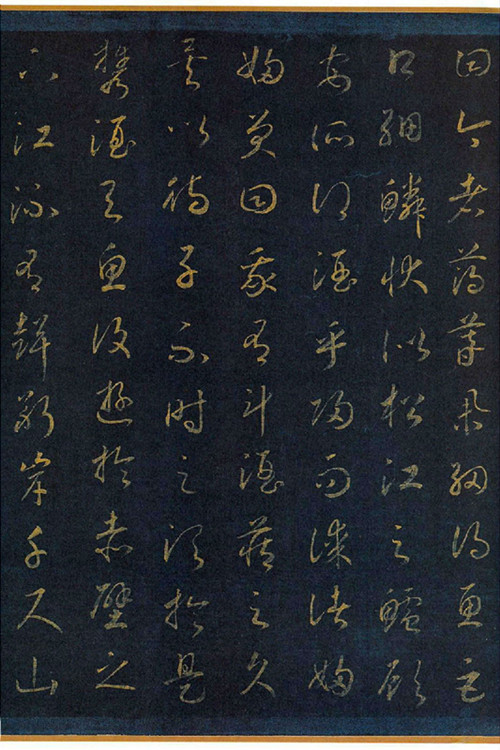 曰今者薄暮舉網得魚巨
口細鱗狀似松江之鱸顧
安所得酒乎歸而謀諸婦
婦笑曰我有斗酒藏之久
矣以待子不時之須於是
攜酒與魚復遊於赤壁之
下江流有聲斷岸千尺山